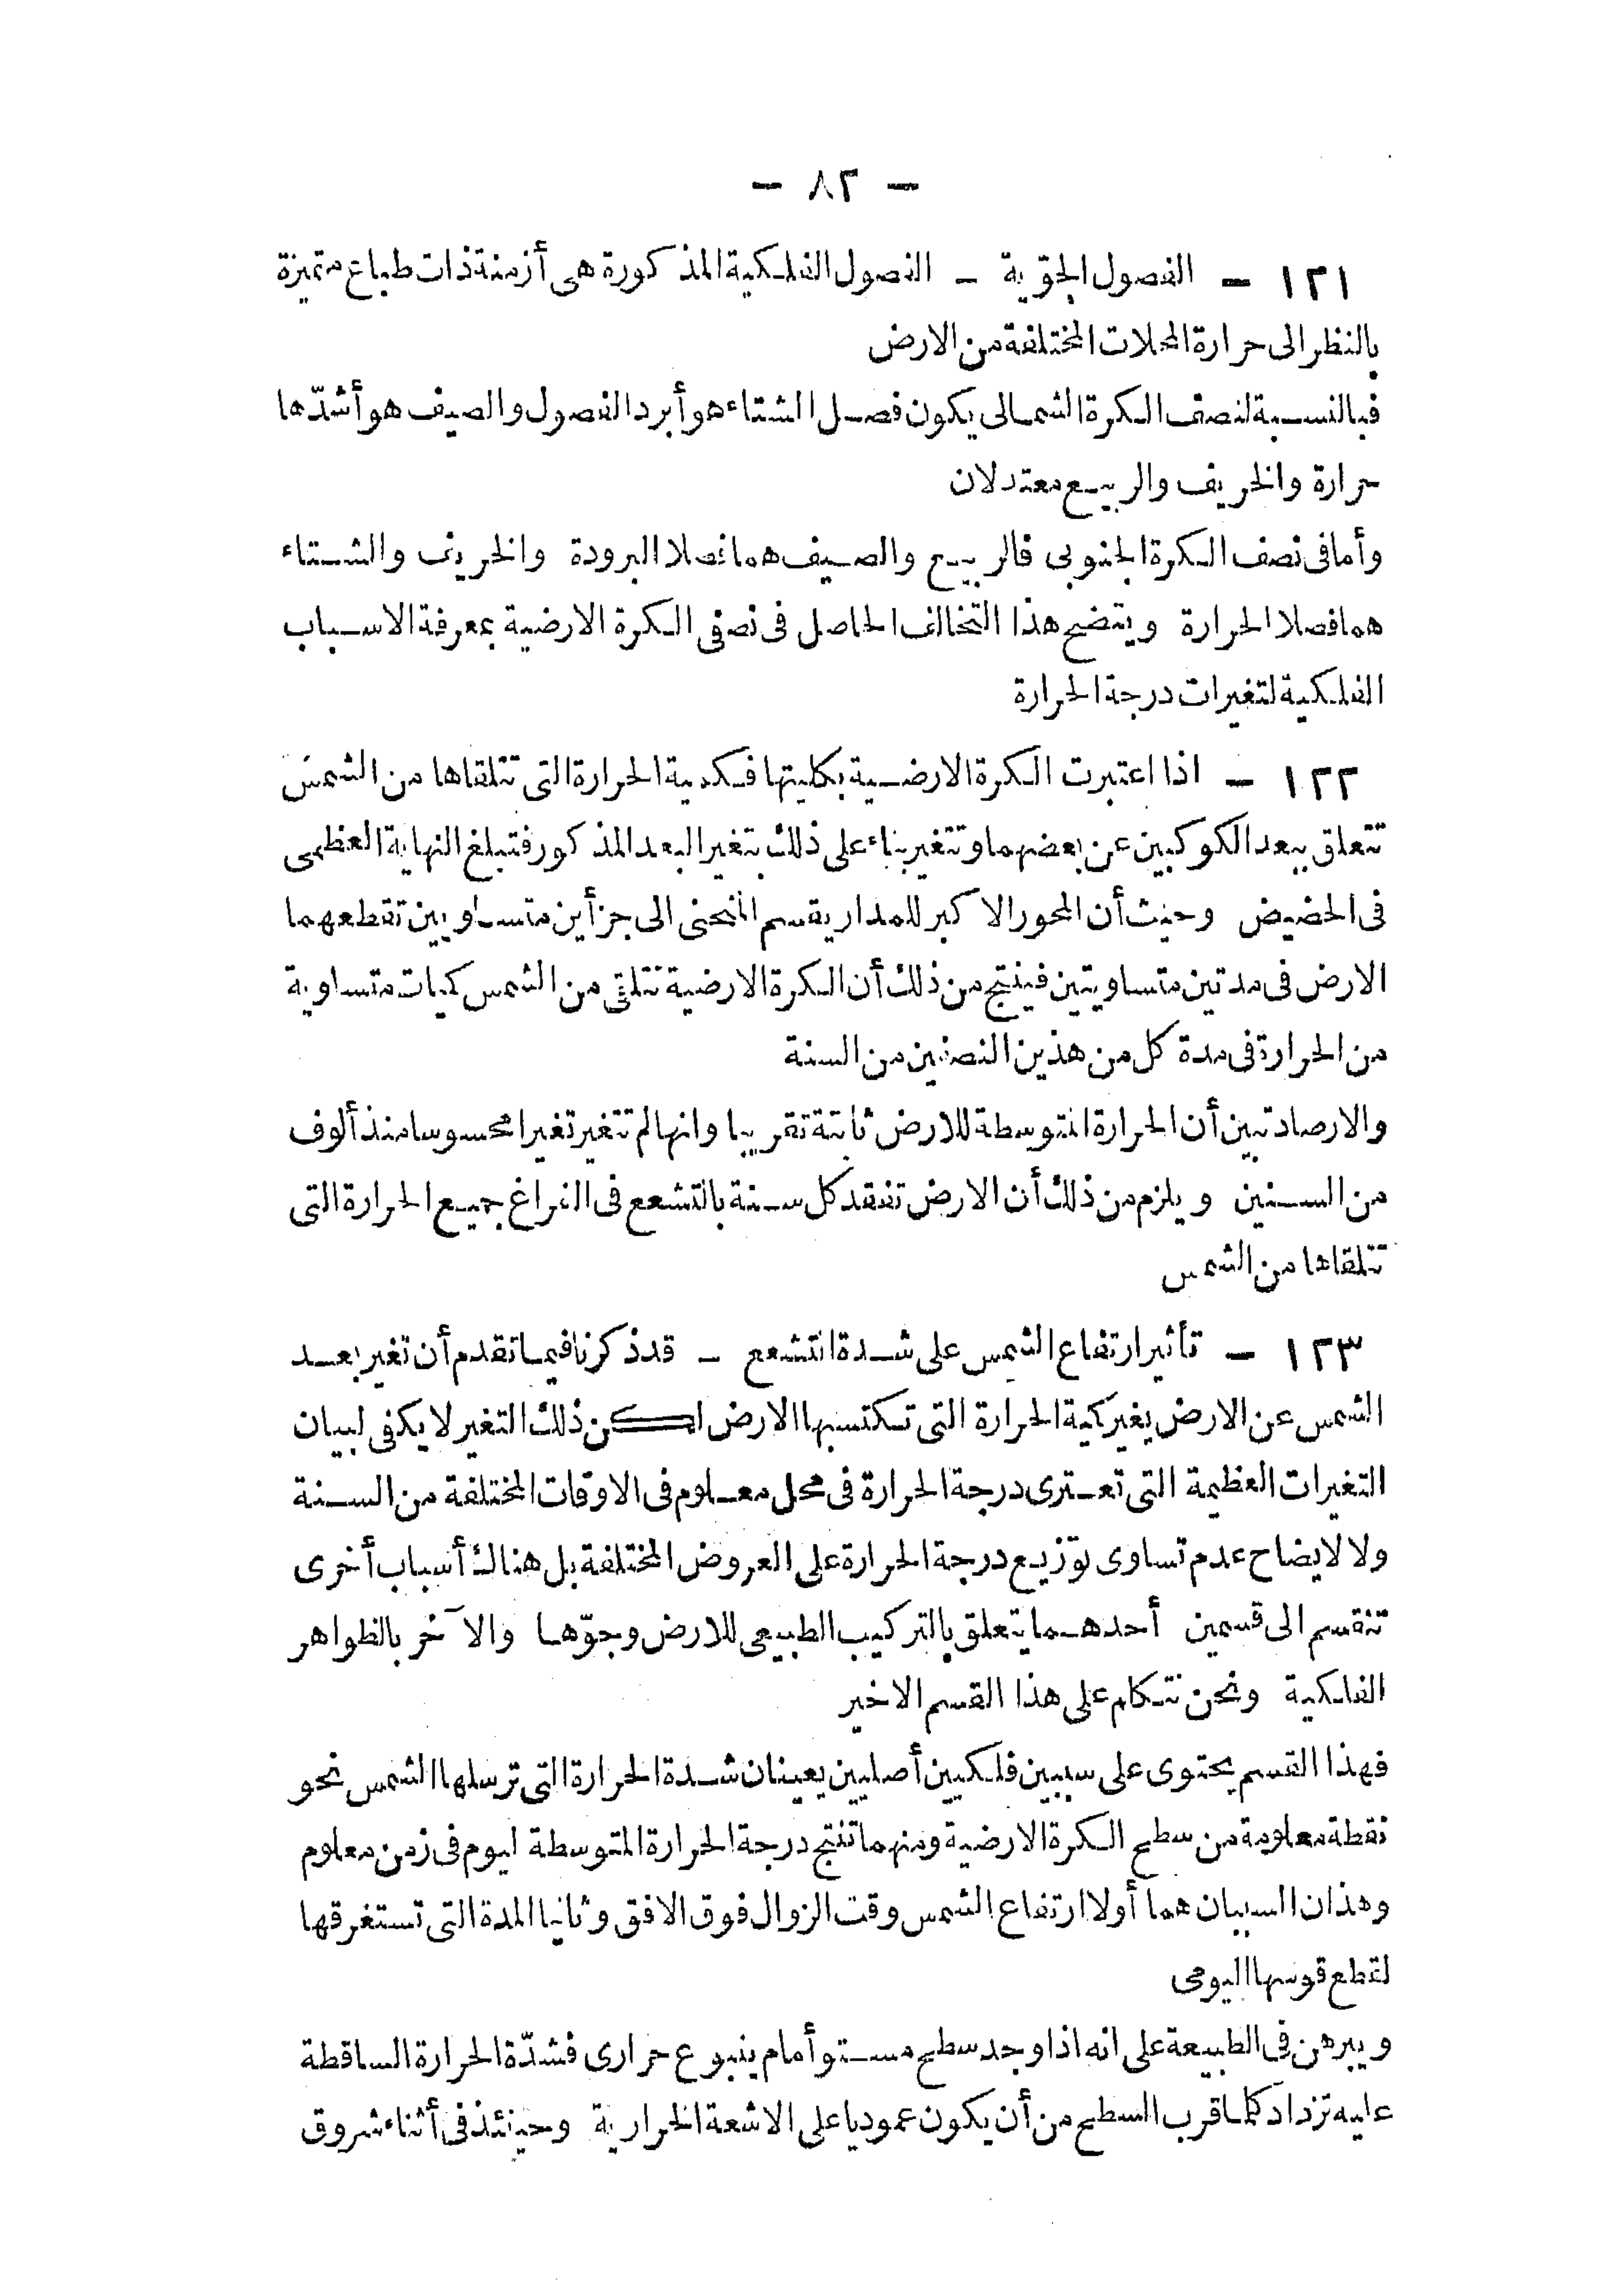 — ٨٢ —
١٢١ — الفصول الجوّية — الفصول الفلكية المذكورة هى أزمنة ذات طباع متميزة
بالنظر الى حرارة المحلات المختلفة من الارض
فبالنسبة لنصف الكرة الشمالى يكون فصل الشتاء هو أبرد الفصول والصيف هو أشدّها
حرارة والخريف والربيع معتدلان
وأما فى نصف الكرة الجنوبى فالربيع والصيف هما فصلا البرودة والخريف والشتاء
هما فصلا الحرارة ويتضح هذا التخالف الحاصل فى نصفى الكرة الارضية بمعرفة الاسباب
الفلكية لتغيرات درجة الحرارة
١٢٢ — اذا اعتبرت الكرة الارضية بكليتها فكمية الحرارة التى تتلقاها من الشمس
تتعلق ببعد الكوكبين عن بعضهما وتتغير بناء على ذلك بتغير البعد المذكور فتبلغ النهاية العظمى
فى الحضيض وحيث أن المحور الاكبر للمدار يقسم المنحنى الى جزأين متساويين تقطعهما
الارض فى مدتين متساويتين فينتج من ذلك أن الكرة الارضية تتلقى من الشمس كميات متساوية
من الحرارة فى مدة كل من هذين النصفين من السنة
والارصاد تبين أن الحرارة المتوسطة للارض ثابتة تقريبا وانها لم تتغير تغيرا محسوسا منذ ألوف
من السنين ويلزم من ذلك أن الارض تفقد كل سنة بالتشعع فى الفراغ جميع الحرارة التى
تتلقاها من الشمس
١٢٣ — تأثير ارتفاع الشمس على شدة التشعع — قد ذكرنا فيما تقدم أن تغير بعد
الشمس عن الارض يغير كمية الحرارة التى تكتسبها الارض لكن ذلك التغير لا يكفى لبيان
التغيرات العظيمة التى تعترى درجة الحرارة فى محل معلوم فى الاوقات المختلفة من السنة
ولا لايضاح عدم تساوى توزيع درجة الحرارة على العروض المختلفة بل هناك أسباب أخرى
تنقسم الى قسمين أحدهما يتعلق بالتركيب الطبيعى للارض وجوّها والآخر بالظواهر
الفلكية ونحن نتكلم على هذا القسم الاخير
فهذا القسم يحتوى على سببين فلكيين أصليين يعينان شدة الحرارة التى ترسلها الشمس نحو
نقطة معلومة من سطح الكرة الارضية ومنهما تنتج درجة الحرارة المتوسطة ليوم فى زمن معلوم
وهذان السببان هما أولا ارتفاع الشمس وقت الزوال فوق الافق وثانيا المدة التى تستغرقها
لقطع قوسها اليومى
ويبرهن فى الطبيعة على انه اذا وجد سطح مستو أمام ينبوع حرارى فشدّة الحرارة الساقطة
عليه تزداد كلما قرب السطح من أن يكون عموديا على الاشعة الحرارية وحينئذ فى أثناء شروق